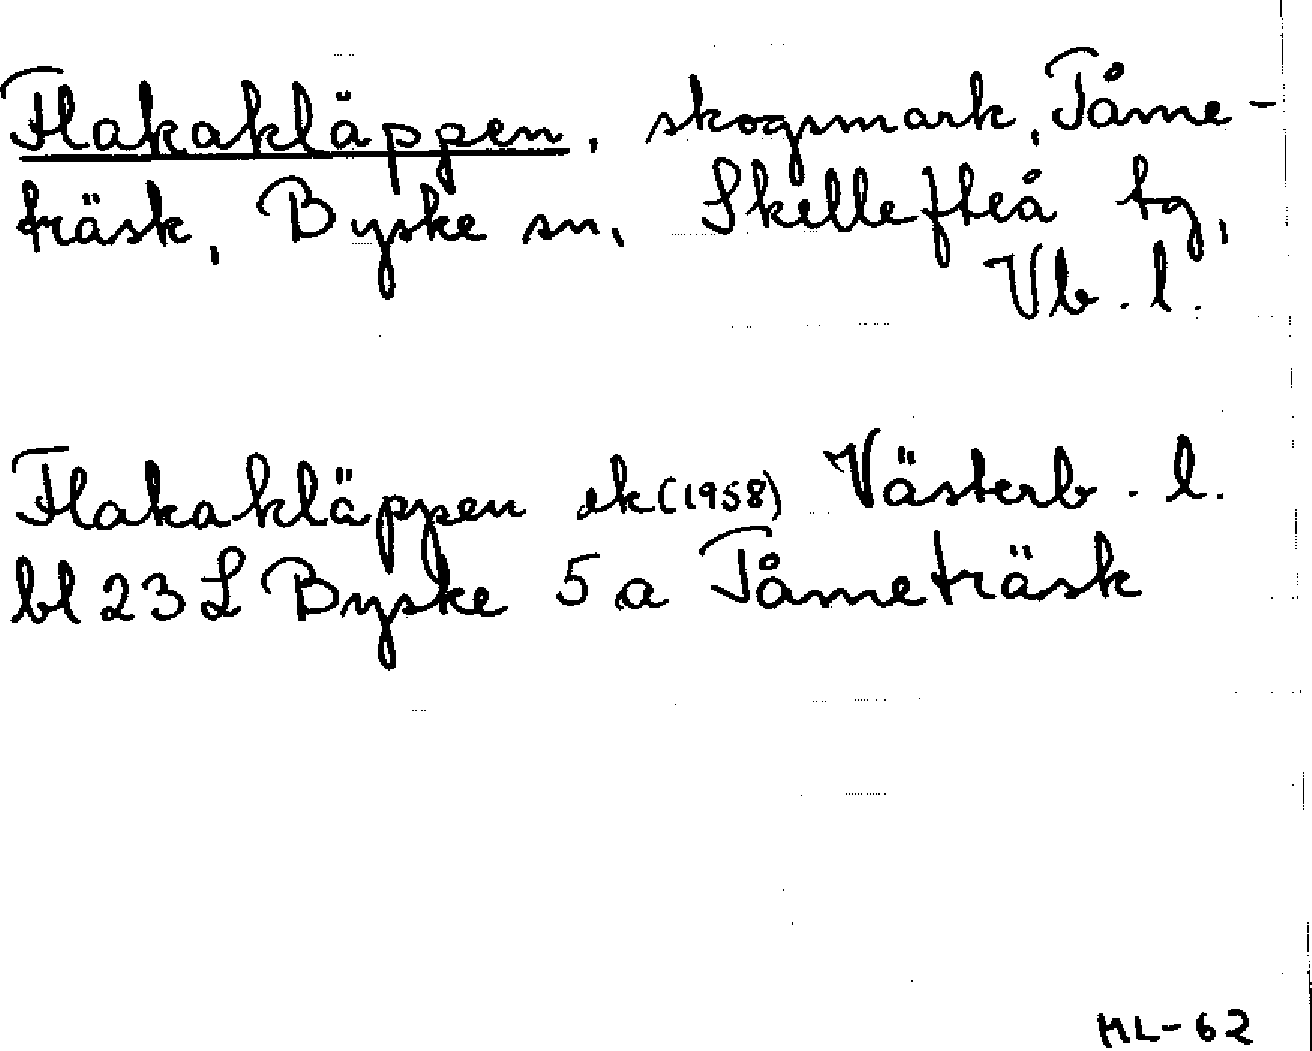 Flakakläppen, skogsmark, Tåme-
träsk, Byske sn, Skellefteå tg,
Vb. l.
Flakakläppen ek (1958) Västerb. l.
bl 23 L Byske 5 a Tåmeträsk
ML-62